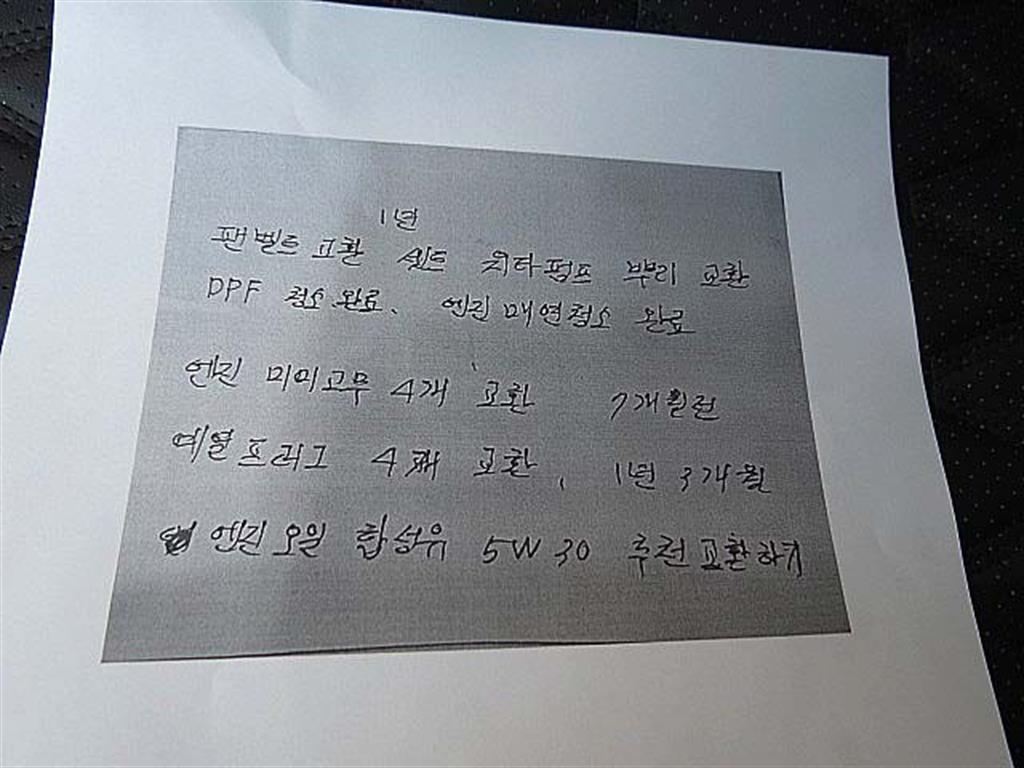 1년
팬벨트 교환 셋트 워타펌프 뿌리 교환
DPF 청소 완료. 엔진 매연청소 완료
엔진 미미고무 4개 교환 7개월전
예열프라그 4개 교환, 1년 3개월
엔진오일 합성유 5W 30 추천 교환하기